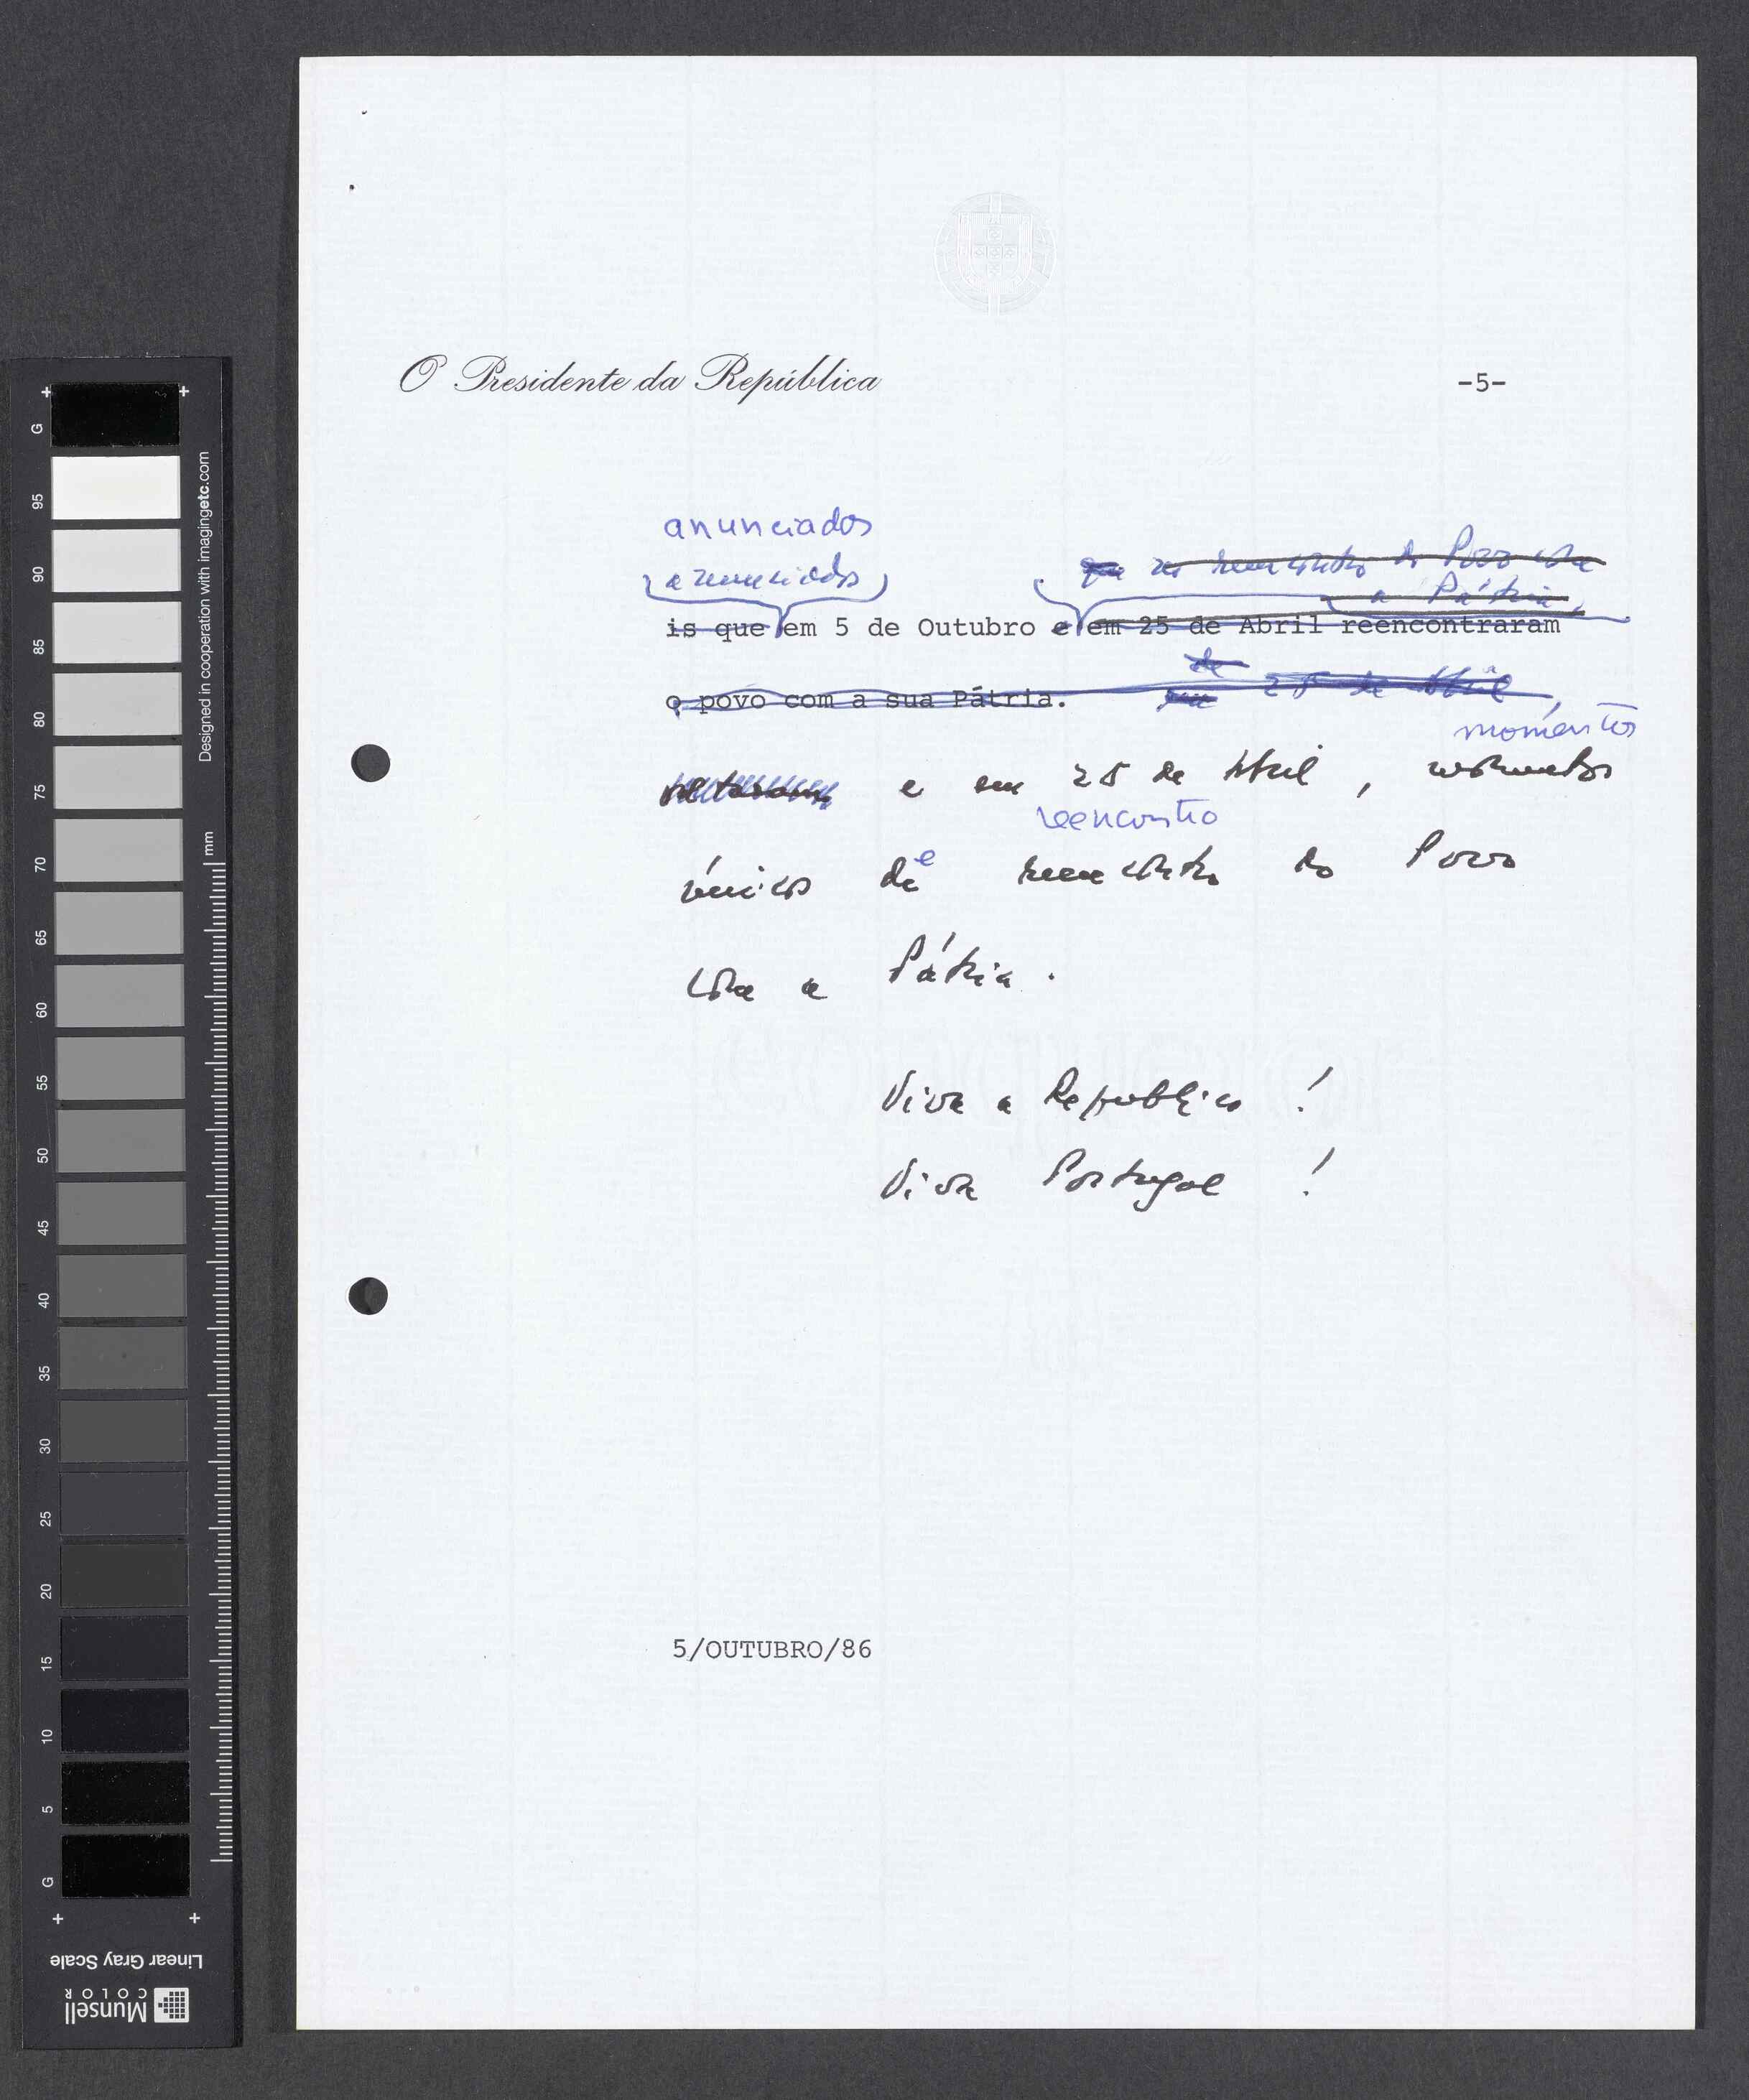 O Presidente da República
-5-
anunciados
anunciados
no reencontro do Povo com
a Pátria,
is que em 5 de Outubro e em 25 de Abril reencontraram
de
o povo com a sua Pátria. em 25 de Abril,
momentos
e em 25 de Abril, momentos
reencontro
únicos de reencontro do Povo
com a Pátria.
Viva a Republica!
Viva Portugal!
5/OUTUBRO/86
G
95
90
85
80
75
70
65
60
55
50
45
40
35
30
25
20
15
10
5
G
mm
Designed in cooperation with imagingetc.com
Linear Gray Scale
Munsell
COLOR